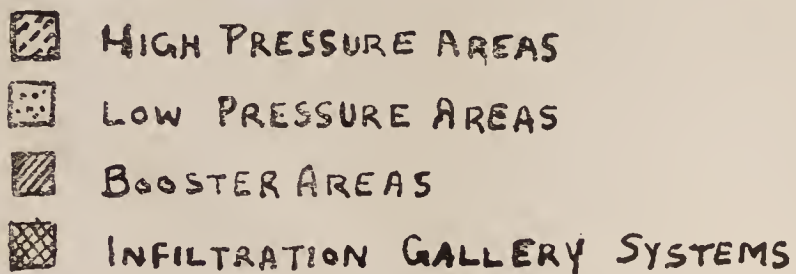 HIGH PRESSURE AREAS
LOW PRESSURE AREAS
BOOSTER AREAS
INFILTRATION GALLERY SYSTEMS